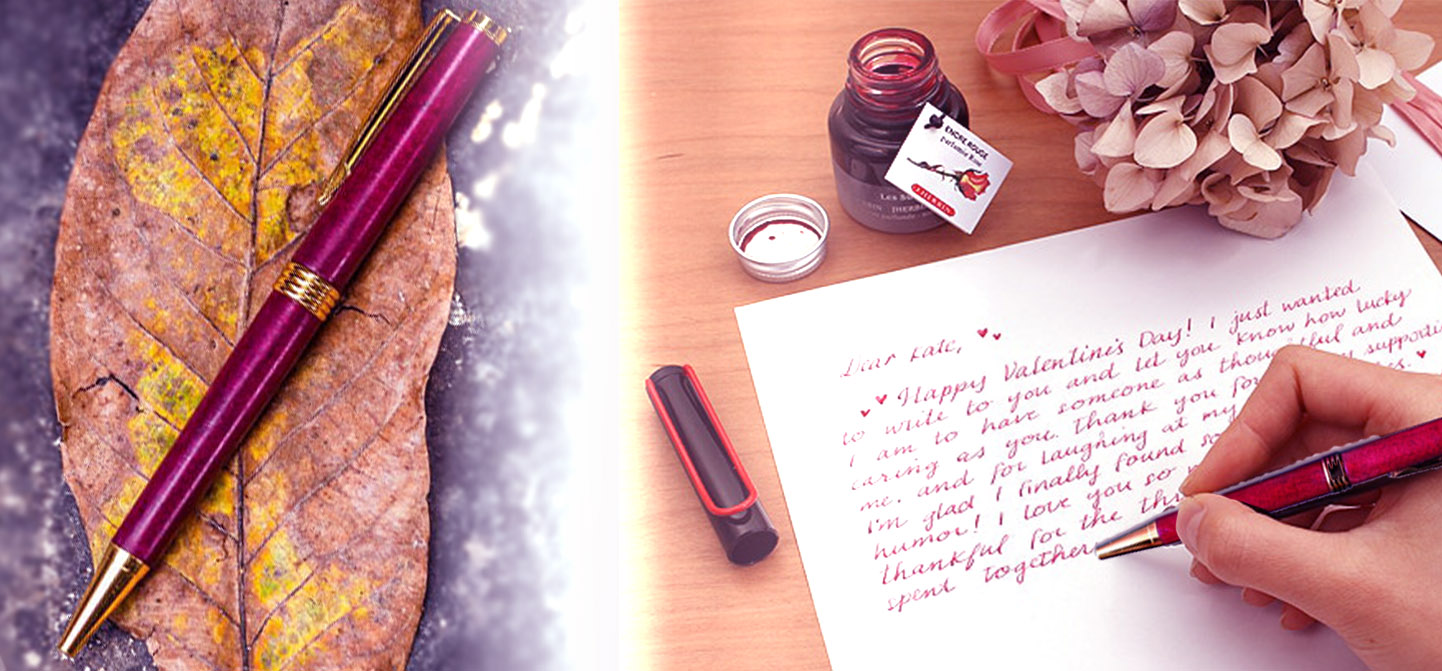 ENCRE ROUGE
Parfumée Rose
J.HERBIN
Les S
HERBIN
Dear Kate,
Happy Valentine's Day! I just wanted
to write to you and let you know how lucky
I am to have someone as and
caring as you. Thank you for supporti
me. and for laughing at my
I'm glad I finally found
humor! I love you so
thankful for the
spent together